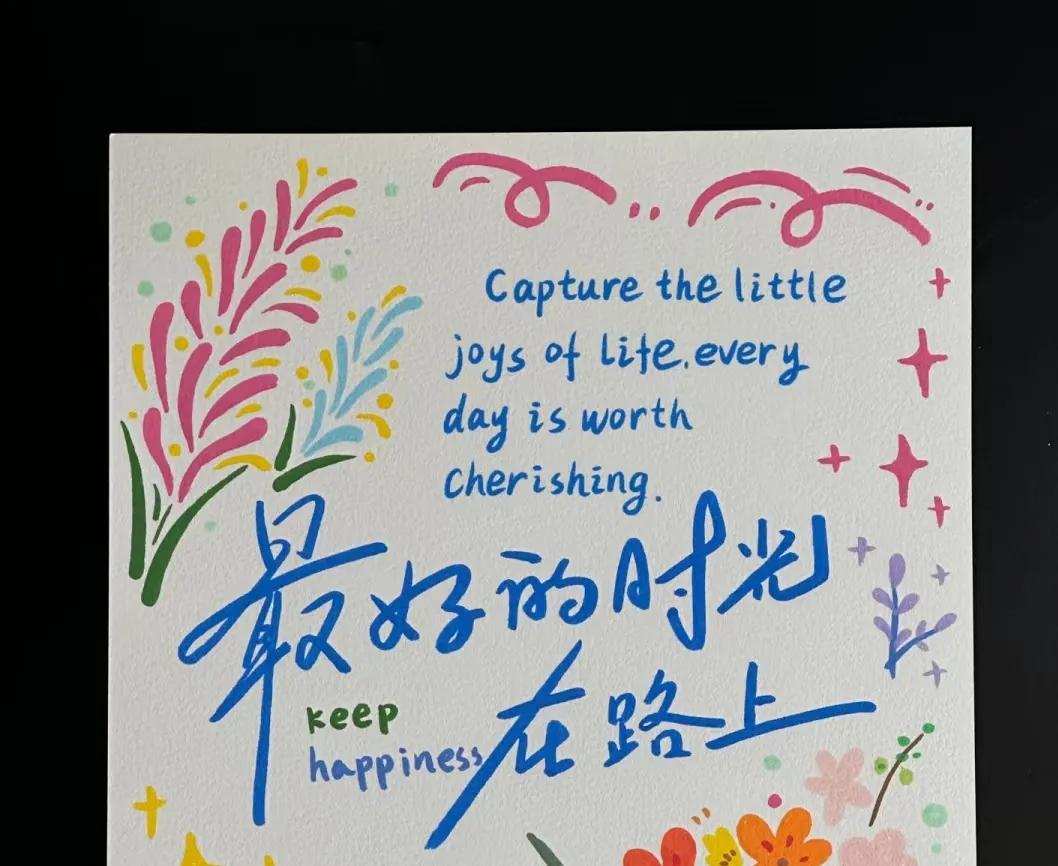 Capture the little
joys of life.every
day is worth
cherishing.
最好的时光
在路上
keep
happiness